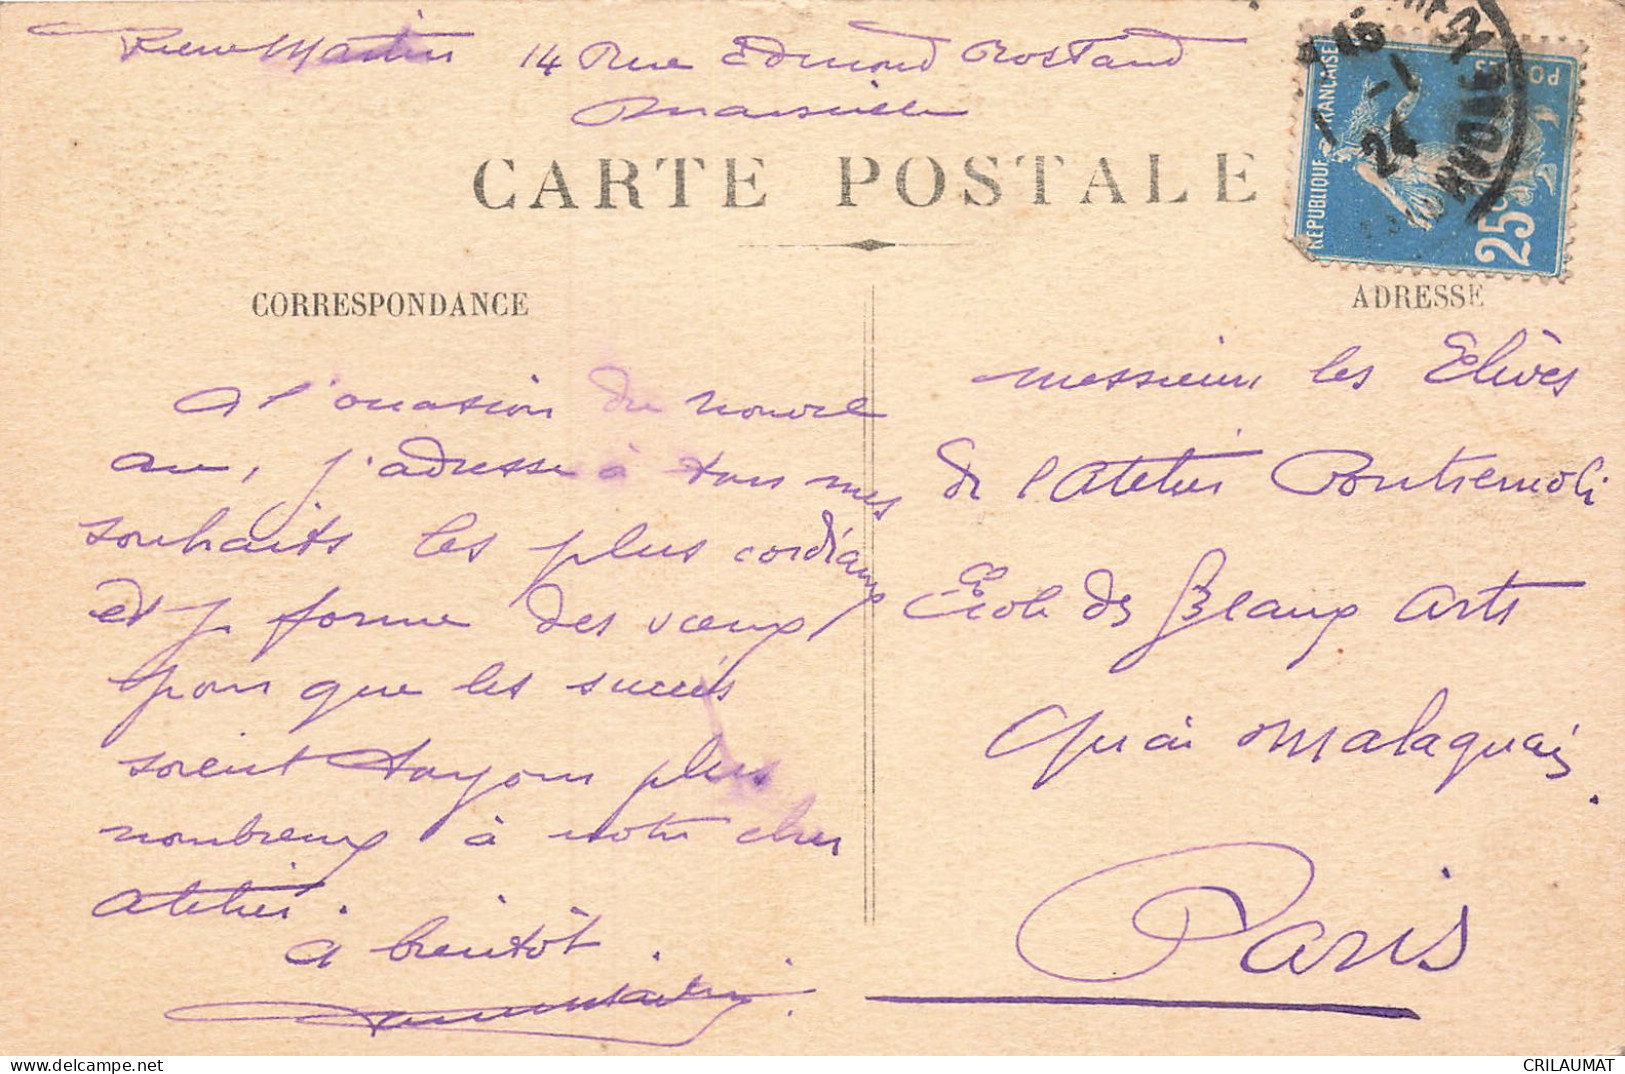 Pierre Martin 14 Rue Edmond Rostand
Marseille
CARTE POSTALE
REPUBLIQUE FRANÇAISE
POSTES
25c
16
-1
24
RHONE
CORRESPONDANCE
A l'occasion du nouvel
an, j'adresse à tous mes
souhaits les plus cordiaux
et je forme des voeux
pour que les succès
soient toujours plus
nombreux à notre cher
atelier.
A bientôt.
ADRESSE
Messieurs les Elèves
de l'Atelier Pontremoli
Ecole des Beaux Arts
Quai Malaquais.
Paris
https://www.delcampe.net
CRILAUMAT